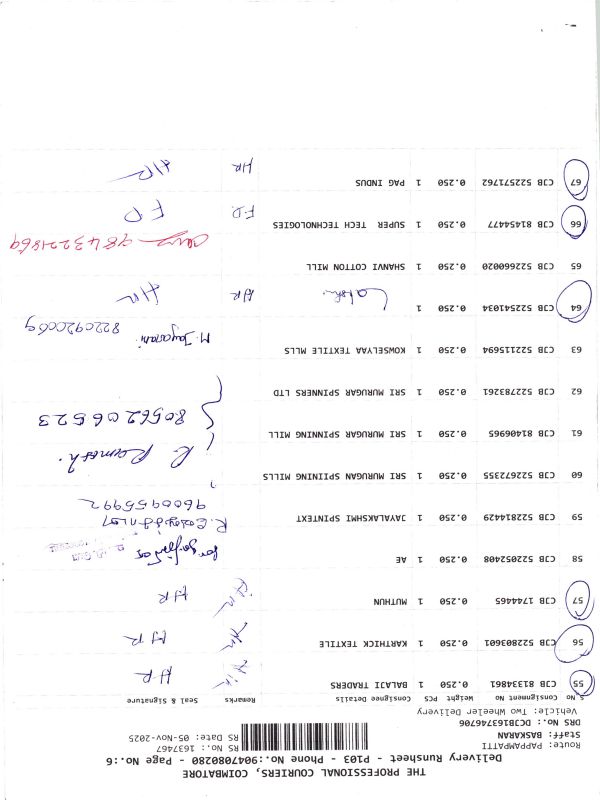 THE PROFESSIONAL COURIERS, COIMBATORE
Delivery Runsheet - P103 - Phone No.:9047080280 - Page No.:6
Route: PAPPAMPATTI
Staff: BASKARAN
DRS No.: DCJB163746706
Vehicle: Two Wheeler Delivery
RS No.: 1637467
RS Date: 05-Nov-2025
S No Consignment No Weight PCS Consignee Details Remarks Seal & Signature
55 CJB 81334861 0.250 1 BALAJI TRADERS HR HR
56 CJB 522803601 0.250 1 KARTHICK TEXTILE HR HR
57 CJB 1744465 0.250 1 MUTHUN HR HR
58 CJB 522052408 0.250 1 AE
59 CJB 522814429 0.250 1 JAYALAKSHMI SPINTEX
9600955992
60 CJB 522672355 0.250 1 SRI MURUGAN SPINIING MILLS
61 CJB 81406965 0.250 1 SRI MURUGAR SPINNING MILL R. Ramesh.
62 CJB 522783261 0.250 1 SRI MURUGAR SPINNERS LTD 8056206523
63 CJB 522115694 0.250 1 KOWSELYAA TEXTILE MLLS M. Jayarani
8220920069
64 CJB 522541034 0.250 1 HR HR
65 CJB 522600020 0.250 1 SHANVI COTTON MILL 9843221869
66 CJB 81454477 0.250 1 SUPER TECH TECHNOLOGIES F.D. F D
67 CJB 522571762 0.250 1 PAG INDUS HR HR